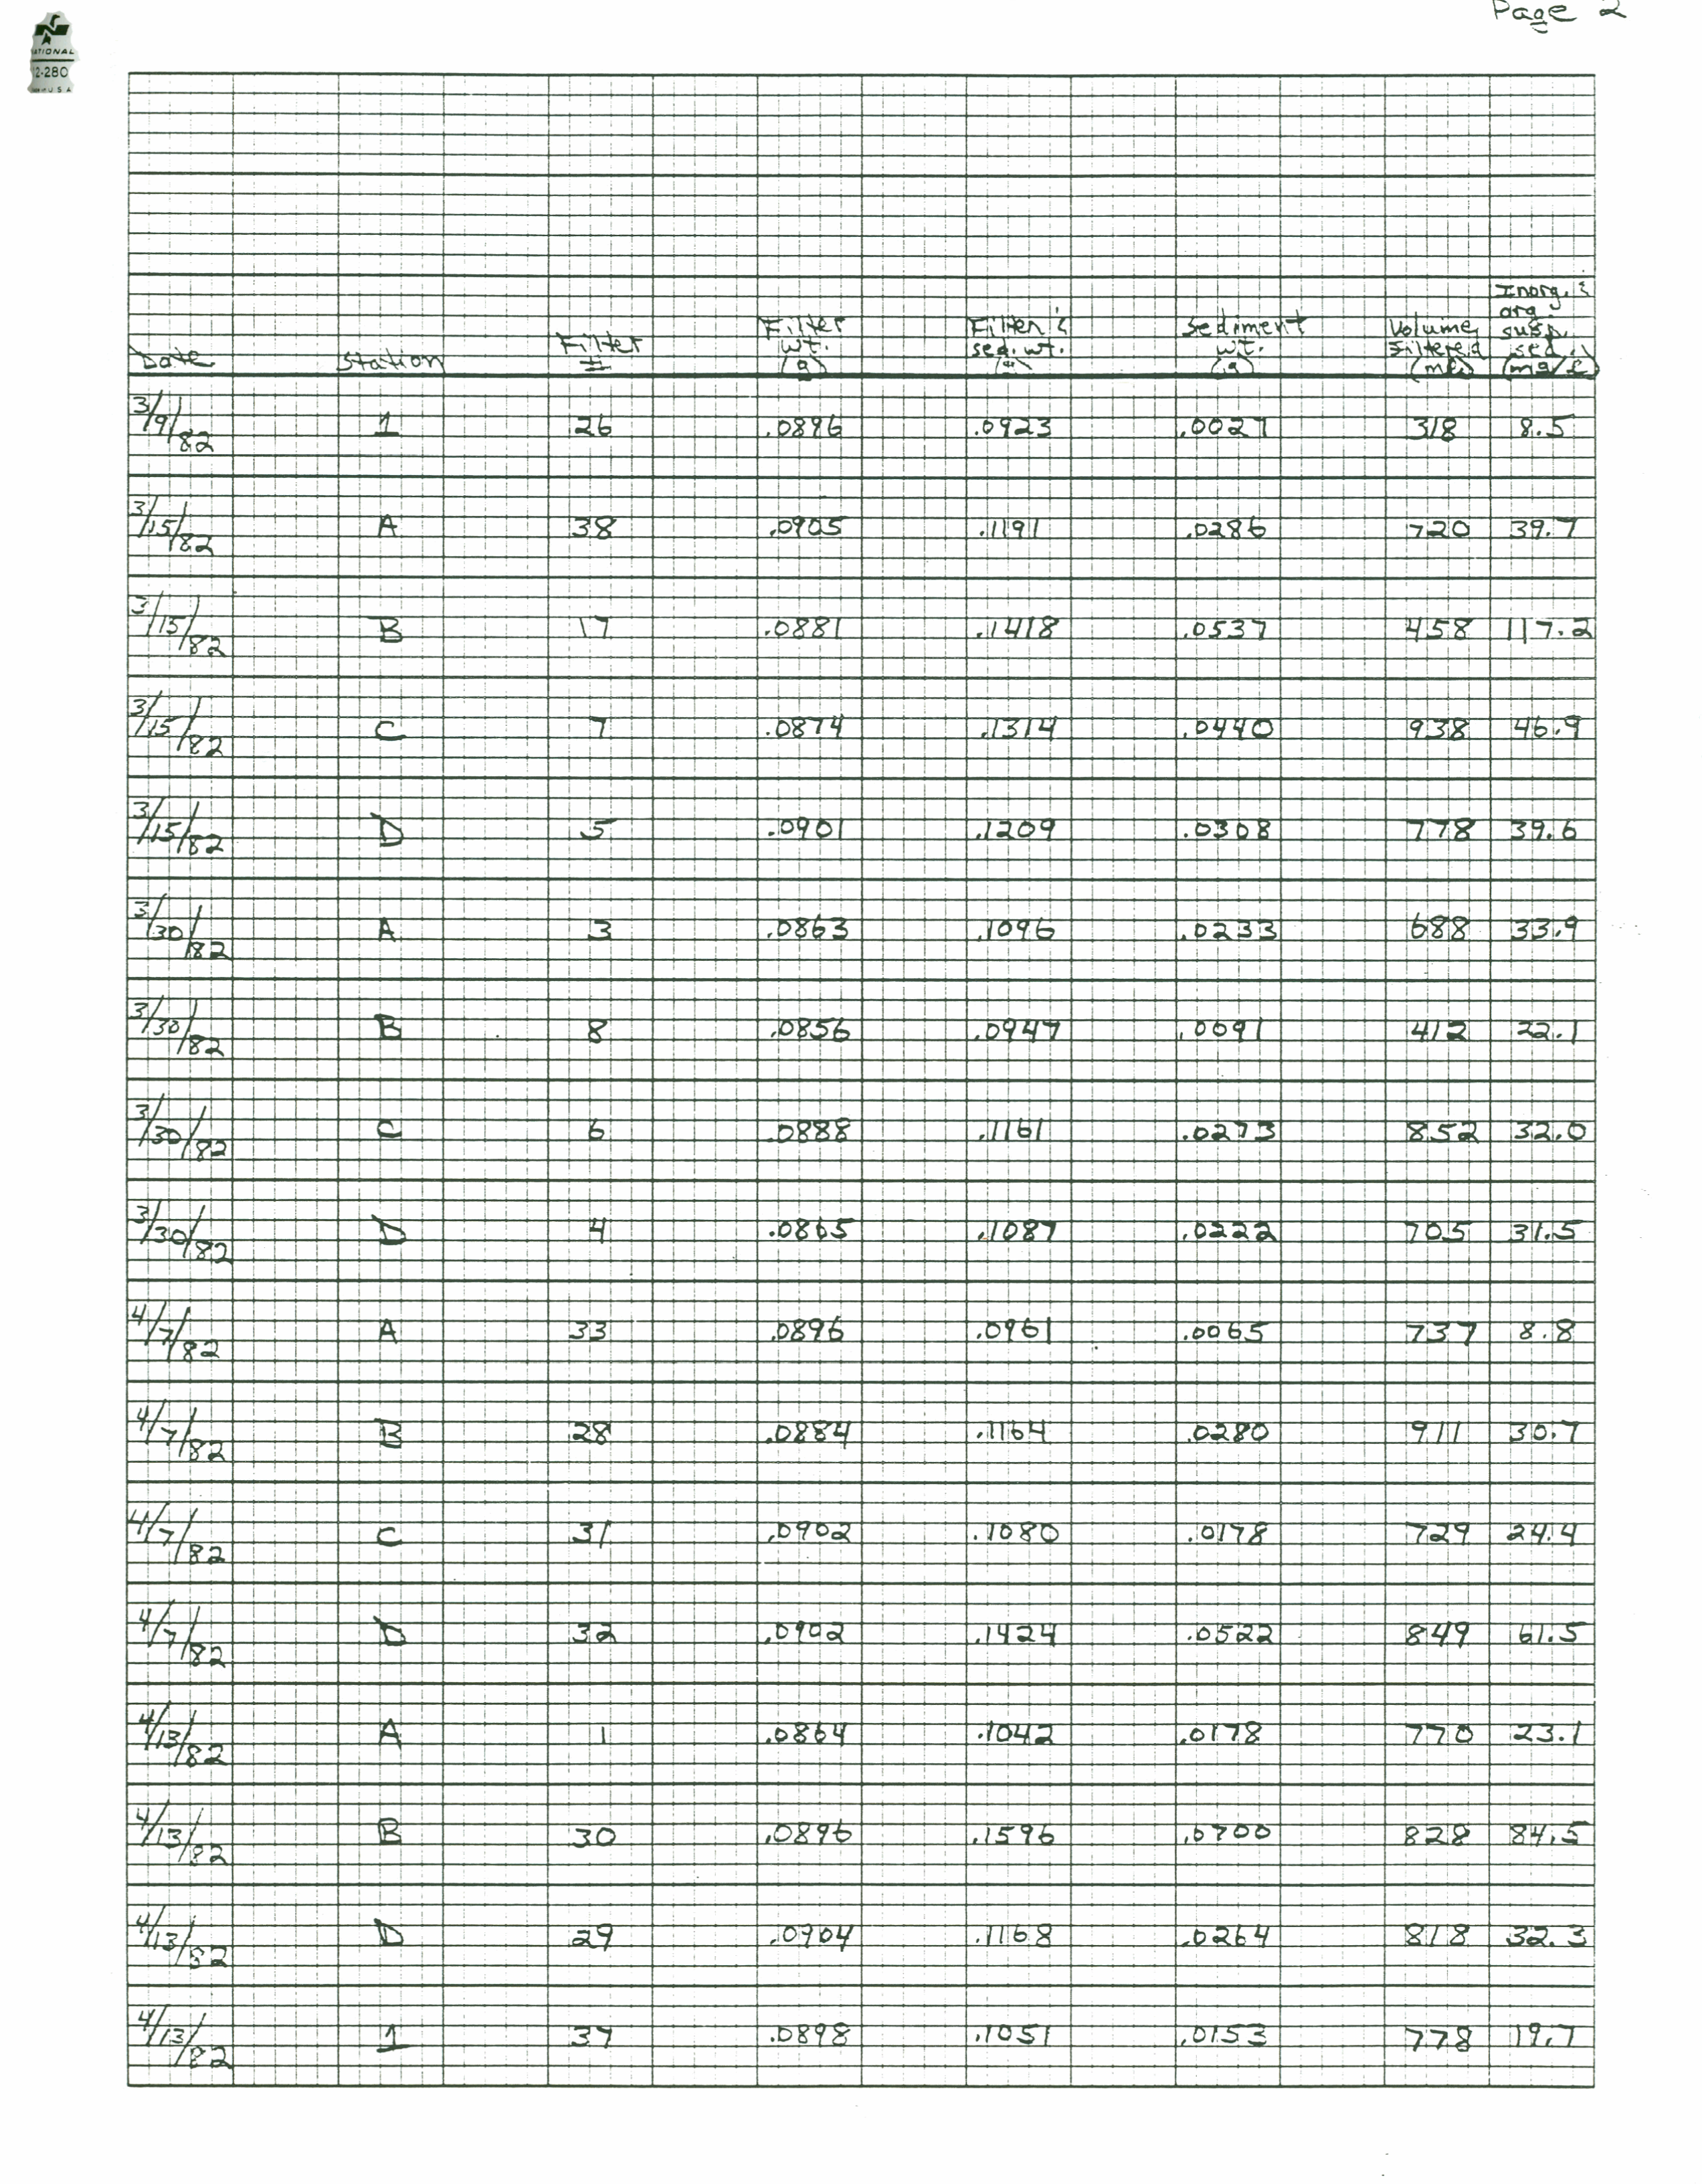 Page 2
NATIONAL
12-280
MADE IN U S A
Inorg. &
org.
Filter Filter & Sediment Volume susp.
Filter wt. sed. wt. wt. Filtered sed.
Date Station # (g) (g) (g) (ml) (mg/l)
3/9/82 1 26 .0896 .0923 .0027 318 8.5
3/15/82 A 38 .0905 .1191 .0286 720 39.7
3/15/82 B 17 .0881 .1418 .0537 458 117.2
3/15/82 C 7 .0874 .1314 .0440 938 46.9
3/15/82 D 5 .0901 .1209 .0308 778 39.6
3/30/82 A 3 .0863 .1096 .0233 688 33.9
3/30/82 B 8 .0856 .0947 .0091 412 22.1
3/30/82 C 6 .0888 .1161 .0273 852 32.0
3/30/82 D 4 .0865 .1087 .0222 705 31.5
4/7/82 A 33 .0896 .0961 .0065 737 8.8
4/7/82 B 28 .0884 .1164 .0280 911 30.7
4/7/82 C 31 .0902 .1080 .0178 729 24.4
4/7/82 D 32 .0902 .1424 .0522 849 61.5
4/13/82 A 1 .0864 .1042 .0178 770 23.1
4/13/82 B 30 .0896 .1596 .0700 828 84.5
4/13/82 D 29 .0904 .1168 .0264 818 32.3
4/13/82 1 37 .0898 .1051 .0153 778 19.7